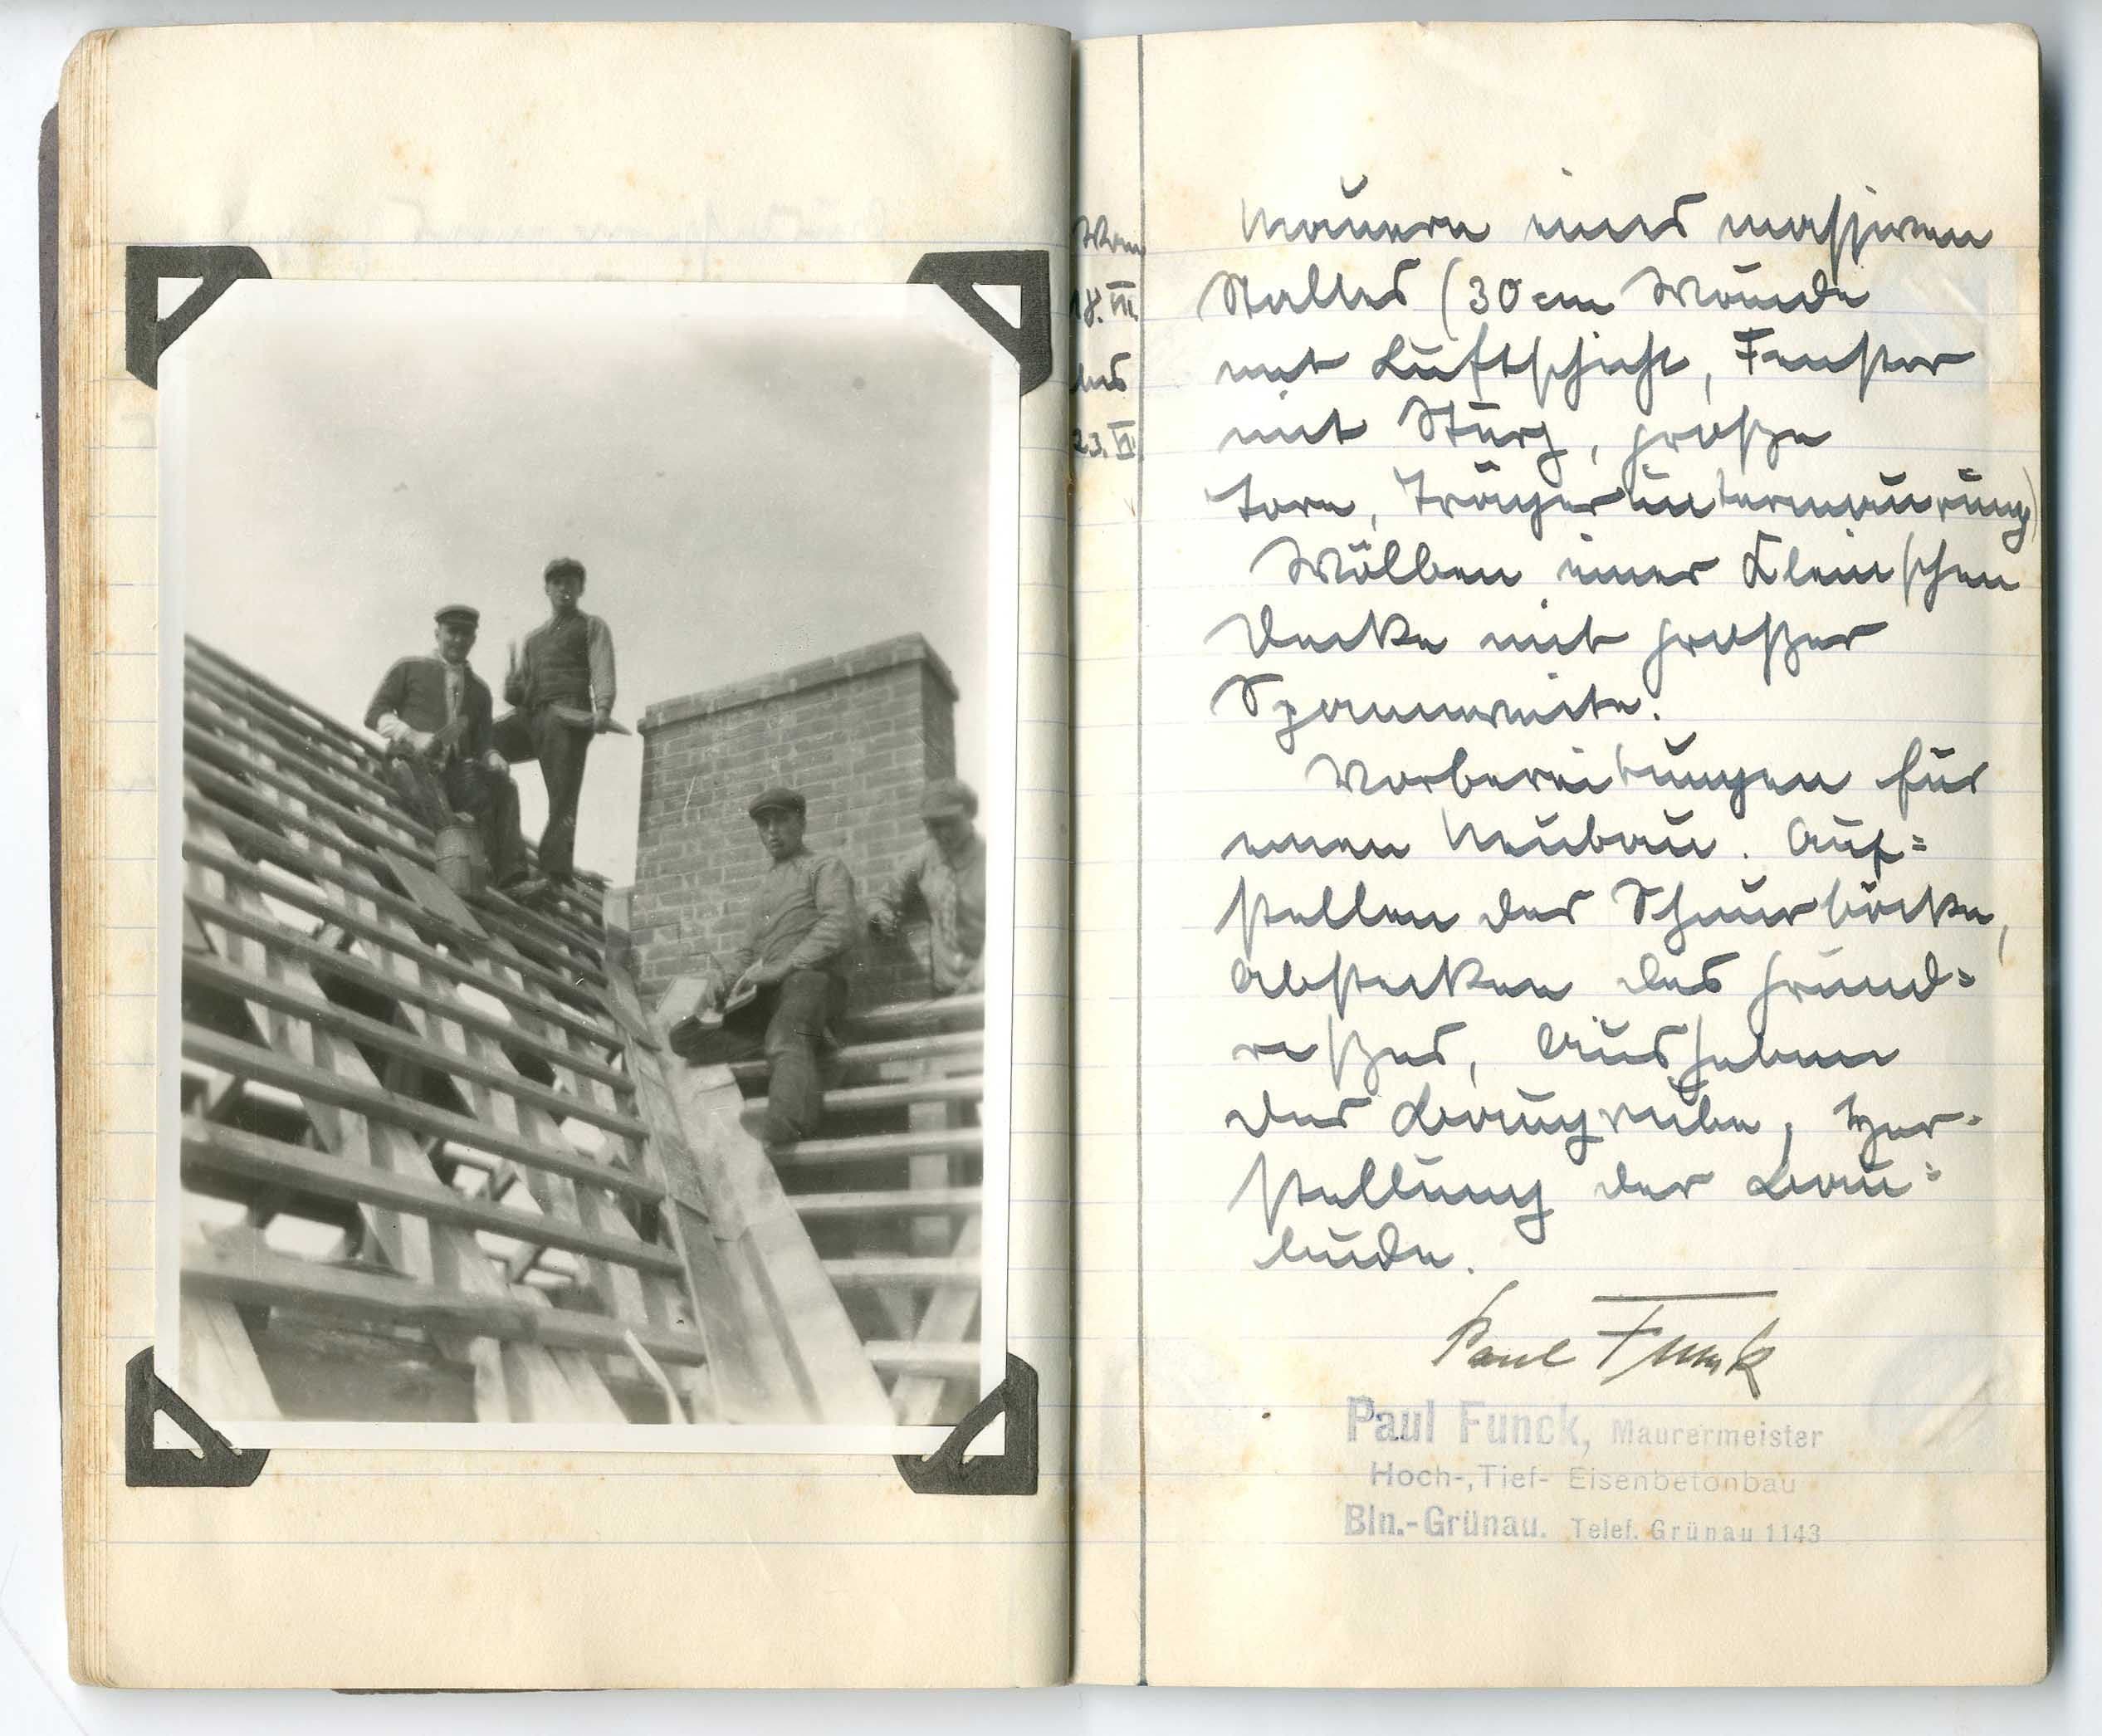 Vom
18. VI.
bis
23. VI.
Mauern eines massiven
Stalles (30 cm Wände
mit Luftschicht, Fenster
mit Sturz, große
Tore, Trägeruntermauerung)
Wölben einer Kleinschen
Decke mit großer
Spannweite.
Vorbereitungen für
einen Neubau. Auf=
stellen der Schnurböcke,
Abstecken des Grund=
rißes, Ausheben
der Baugrube, Her=
stellung der Bau=
bude.
Paul Funck
Paul Funck, Maurermeister
Hoch-, Tief- Eisenbetonbau
Bln.-Grünau. Telef. Grünau 1143